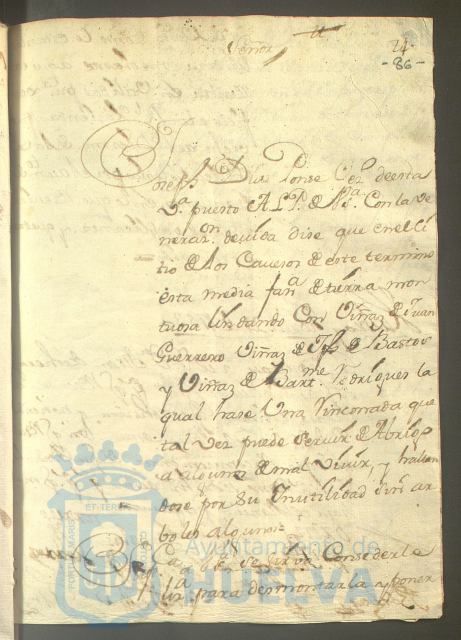 Señor
24
-86-
Joseph Ponse de esta
V.ª puerto A L. P. de V. S.ª Con la ve
nerasn. devida dise que en el si
tio de los Caveros de este termino
esta media fanª de tierra mon
tuosa lindando Con Viñas de Juan
Guerrero Viñas de Bastos
y Viñas de Bartme. Rodrigues la
qual hase Una Rinconada que
tal vez puede servir de Abrigo
a algunos de mal vivir, y hallan
dose por su Inutilidad sin ar
boles algunos=
se sirva Consederle
lisª para desmontarla y poner
Ayuntamiento de
HUELVA